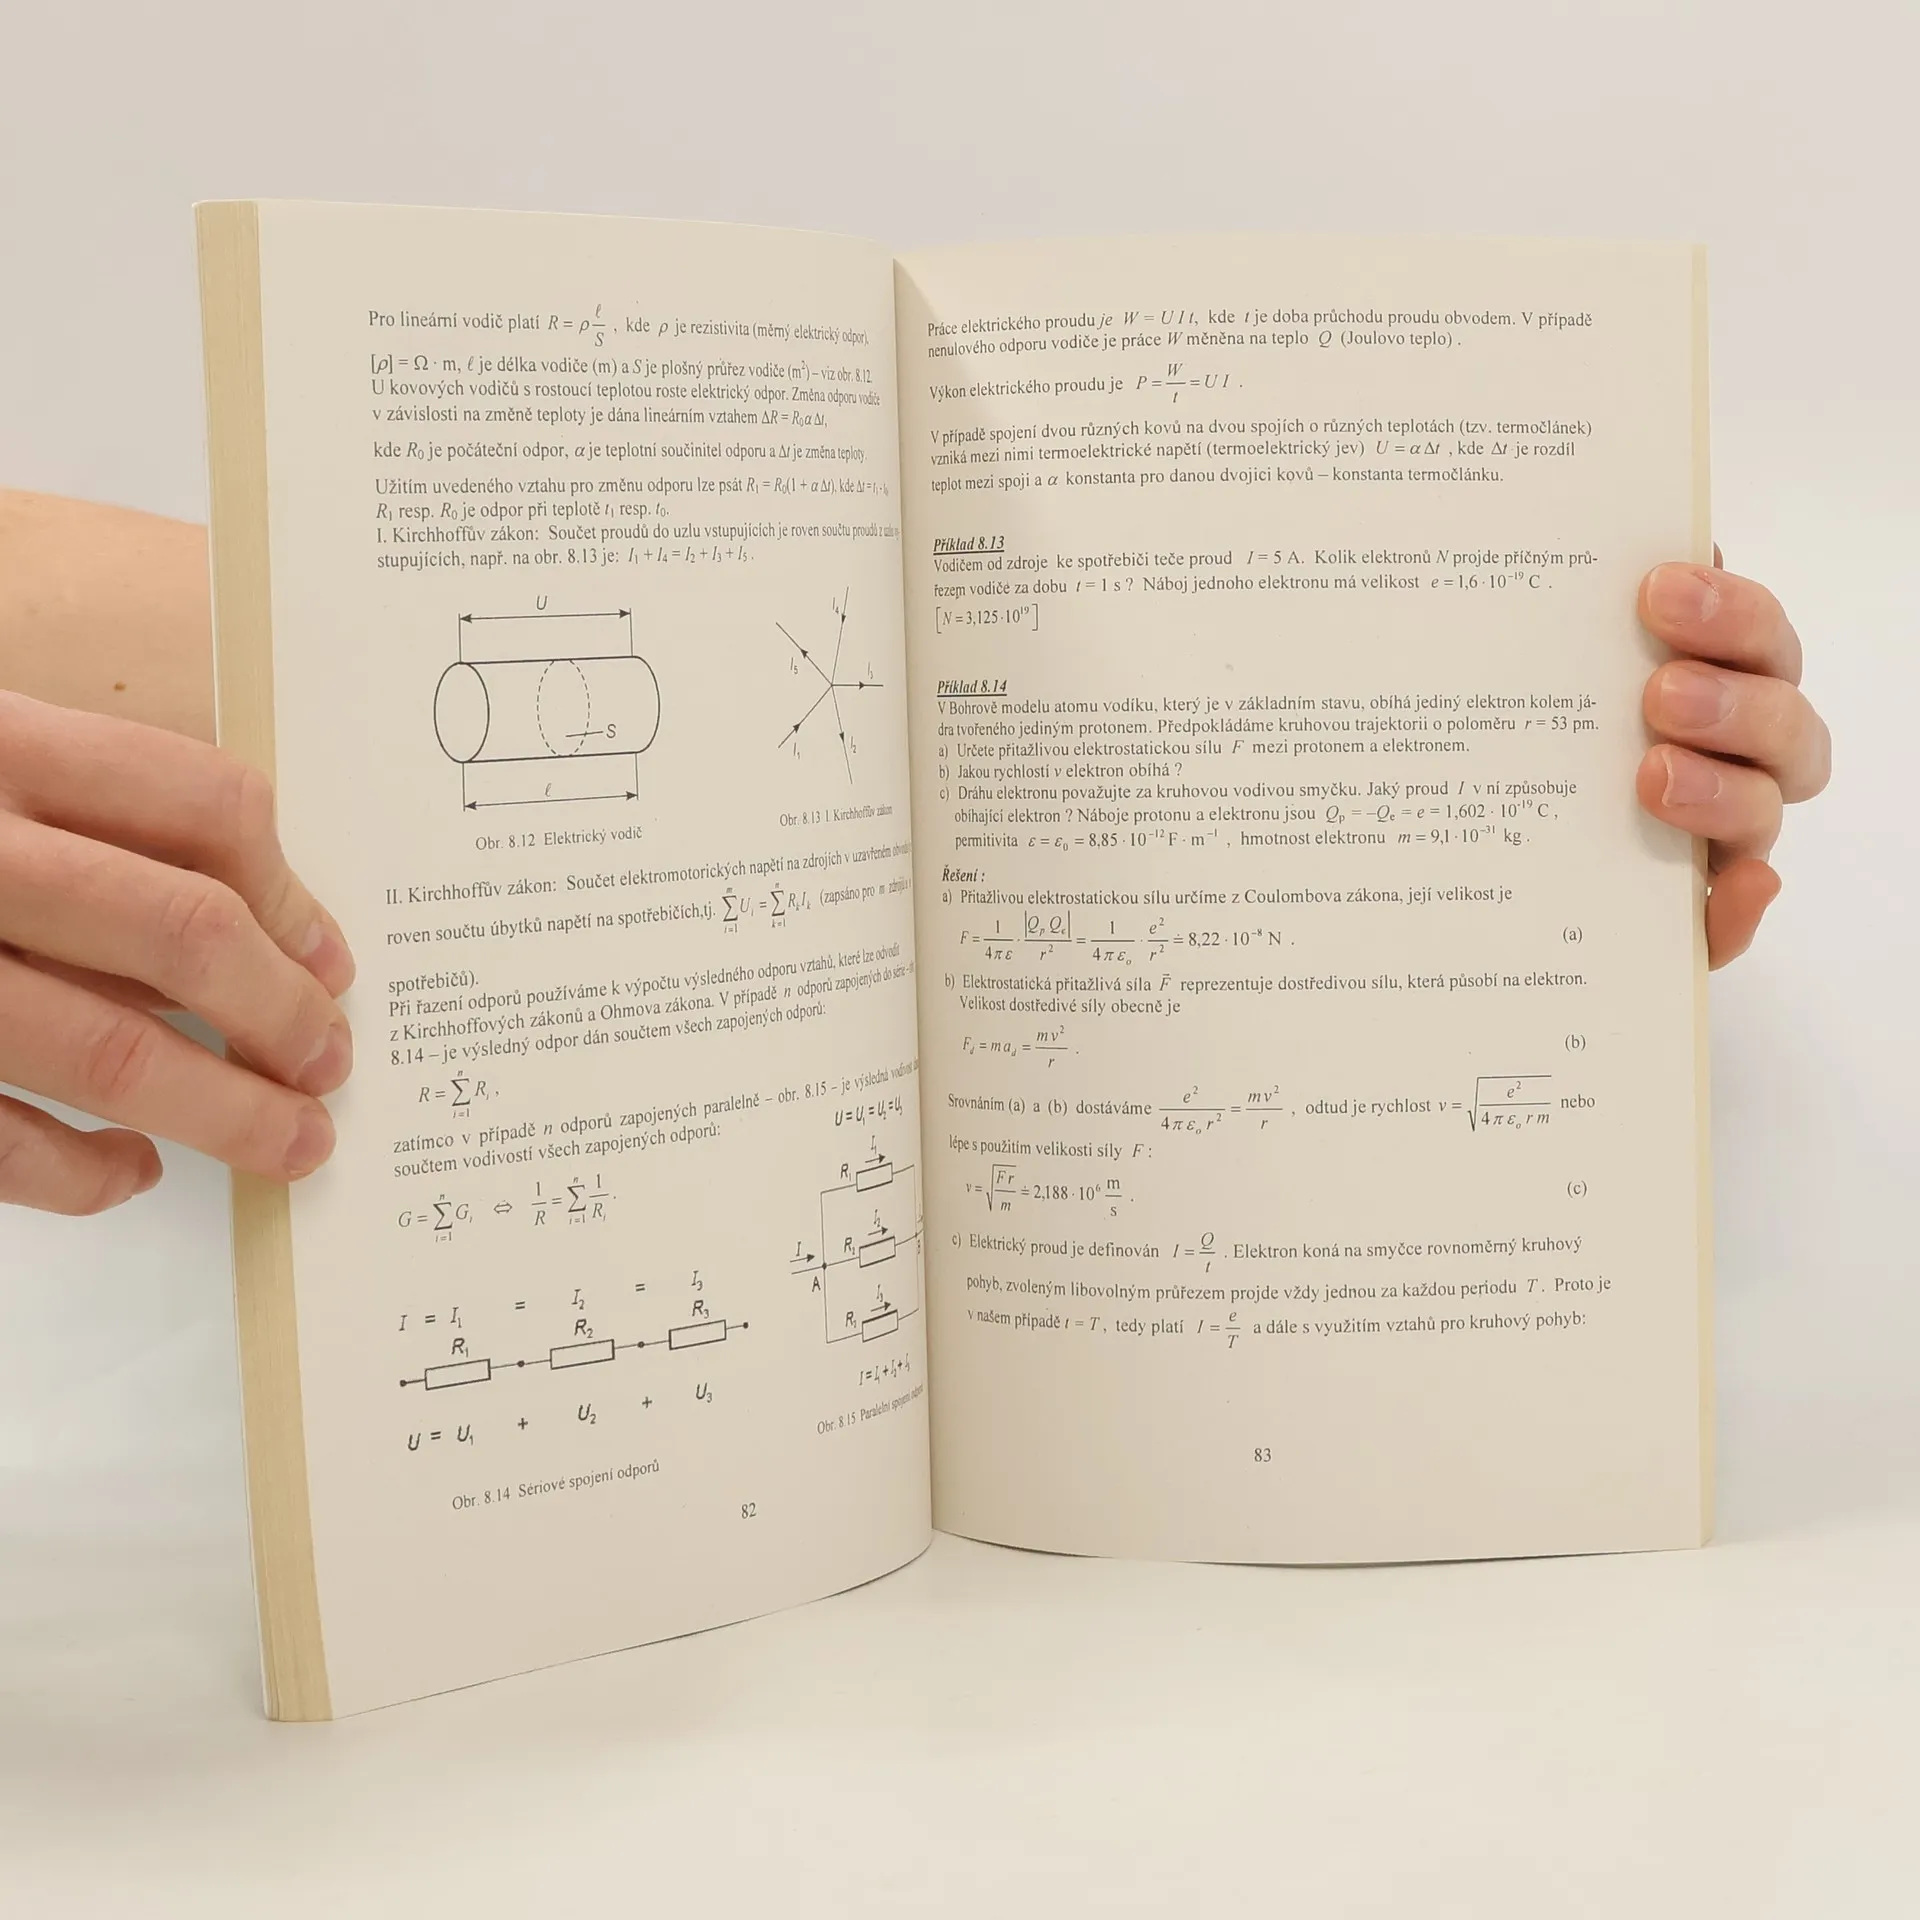 Pro lineární vodič platí R = ρ ℓ/S , kde ρ je rezistivita (měrný elektrický odpor),
[ρ] = Ω · m, ℓ je délka vodiče (m) a S je plošný průřez vodiče (m²) – viz obr. 8.12.
U kovových vodičů s rostoucí teplotou roste elektrický odpor. Změna odporu vodiče
v závislosti na změně teploty je dána lineárním vztahem ΔR = R₀α Δt,
kde R₀ je počáteční odpor, α je teplotní součinitel odporu a Δt je změna teploty.
Užitím uvedeného vztahu pro změnu odporu lze psát R₁ = R₀(1 + α Δt), kde Δt = t₁ - t₀
R₁ resp. R₀ je odpor při teplotě t₁ resp. t₀.
I. Kirchhoffův zákon: Součet proudů do uzlu vstupujících je roven součtu proudů z uzlu
stupujících, např. na obr. 8.13 je: I₁ + I₄ = I₂ + I₃ + I₅ .
U
S
ℓ
I₄
I₅
I₃
I₁
I₂
Obr. 8.12 Elektrický vodič
Obr. 8.13 I. Kirchhoffův zákon
II. Kirchhoffův zákon: Součet elektromotorických napětí na zdrojích v uzavřeném
roven součtu úbytků napětí na spotřebičích,tj. ∑_{i=1}^{m} U_i = ∑_{k=1}^{n} R_k I_k (zapsáno pro m zdrojů
spotřebičů).
Při řazení odporů používáme k výpočtu výsledného odporu vztahů, které lze odvodit
z Kirchhoffových zákonů a Ohmova zákona. V případě n odporů zapojených do série –
8.14 – je výsledný odpor dán součtem všech zapojených odporů:
R = ∑_{i=1}^{n} R_i ,
zatímco v případě n odporů zapojených paralelně – obr. 8.15 – je výsledná vodivost
součtem vodivostí všech zapojených odporů:
G = ∑_{i=1}^{n} G_i ⇔ 1/R = ∑_{i=1}^{n} 1/R_i .
U = U₁ = U₂ = U₃
I₁
R₁
I₂
I
R₂
A
B
I₃
R₃
I = I₁ + I₂ + I₃
Obr. 8.15 Paralelní spojení odporů
I = I₁ = I₂ = I₃
R₁ R₂ R₃
U = U₁ + U₂ + U₃
Obr. 8.14 Sériové spojení odporů
82
Práce elektrického proudu je W = U I t, kde t je doba průchodu proudu obvodem. V případě
nenulového odporu vodiče je práce W měněna na teplo Q (Joulovo teplo) .
Výkon elektrického proudu je P = W/t = U I .
V případě spojení dvou různých kovů na dvou spojích o různých teplotách (tzv. termočlánek)
vzniká mezi nimi termoelektrické napětí (termoelektrický jev) U = α Δt , kde Δt je rozdíl
teplot mezi spoji a α konstanta pro danou dvojici kovů – konstanta termočlánku.
Příklad 8.13
Vodičem od zdroje ke spotřebiči teče proud I = 5 A. Kolik elektronů N projde příčným prů-
řezem vodičé za dobu t = 1 s ? Náboj jednoho elektronu má velikost e = 1,6 · 10⁻¹⁹ C .
[N = 3,125·10¹⁹]
Příklad 8.14
V Bohrově modelu atomu vodíku, který je v základním stavu, obíhá jediný elektron kolem já-
dra tvořeného jediným protonem. Předpokládáme kruhovou trajektorii o poloměru r = 53 pm.
a) Určete přitažlivou elektrostatickou sílu F mezi protonem a elektronem.
b) Jakou rychlostí v elektron obíhá ?
c) Dráhu elektronu považujte za kruhovou vodivou smyčku. Jaký proud I v ní způsobuje
obíhající elektron ? Náboje protonu a elektronu jsou Qₚ = –Qₑ = e = 1,602 · 10⁻¹⁹ C ,
permitivita ε = ε₀ = 8,85 · 10⁻¹² F · m⁻¹ , hmotnost elektronu m = 9,1 · 10⁻³¹ kg .
Řešení :
a) Přitažlivou elektrostatickou sílu určíme z Coulombova zákona, její velikost je
F = 1/(4πε) · |Qₚ Qₑ|/r² = 1/(4πε₀) · e²/r² ≐ 8,22 · 10⁻⁸ N . (a)
b) Elektrostatická přitažlivá síla F⃗ reprezentuje dostředivou sílu, která působí na elektron.
Velikost dostředivé síly obecně je
F_d = m a_d = mv²/r . (b)
Srovnáním (a) a (b) dostáváme e²/(4πε₀r²) = mv²/r , odtud je rychlost v = √(e²/(4πε₀rm)) nebo
lépe s použitím velikosti síly F :
v = √(Fr/m) ≐ 2,188 · 10⁶ m/s . (c)
c) Elektrický proud je definován I = Q/t . Elektron koná na smyčce rovnoměrný kruhový
pohyb, zvoleným libovolným průřezem projde vždy jednou za každou periodu T . Proto je
v našem případě t = T , tedy platí I = e/T a dále s využitím vztahů pro kruhový pohyb:
83